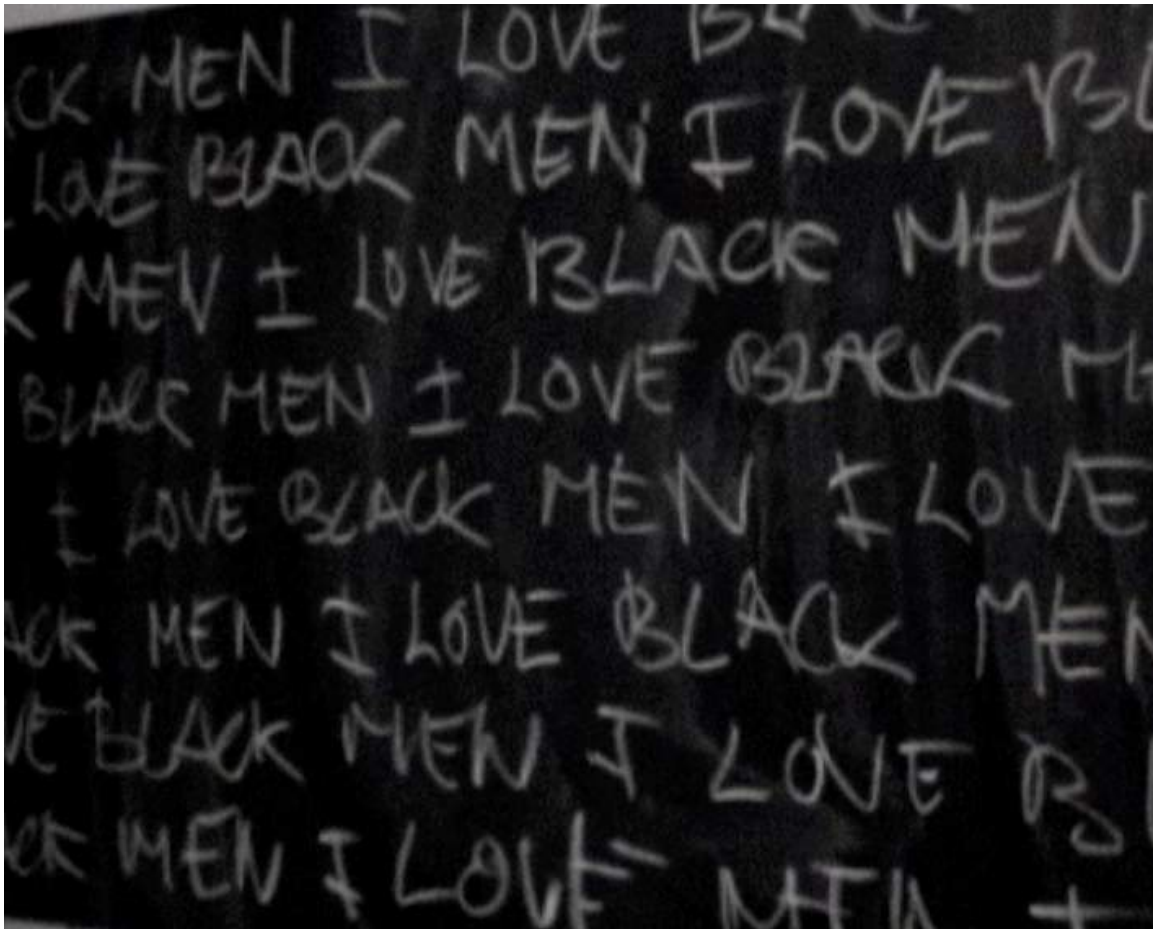 CK MEN I LOVE BLACK
LOVE BLACK MEN I LOVE BL
K MEN I LOVE BLACK MEN
BLACK MEN I LOVE BLACK ME
I LOVE BLACK MEN I LOVE
ACK MEN I LOVE BLACK MEN
VE BLACK MEN I LOVE B
CK MEN I LOVE MEN I